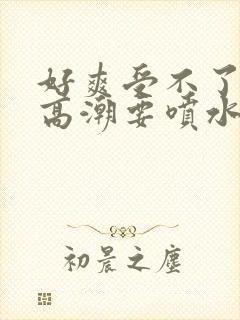 好爽受不了
高潮要喷水
初晨之尘